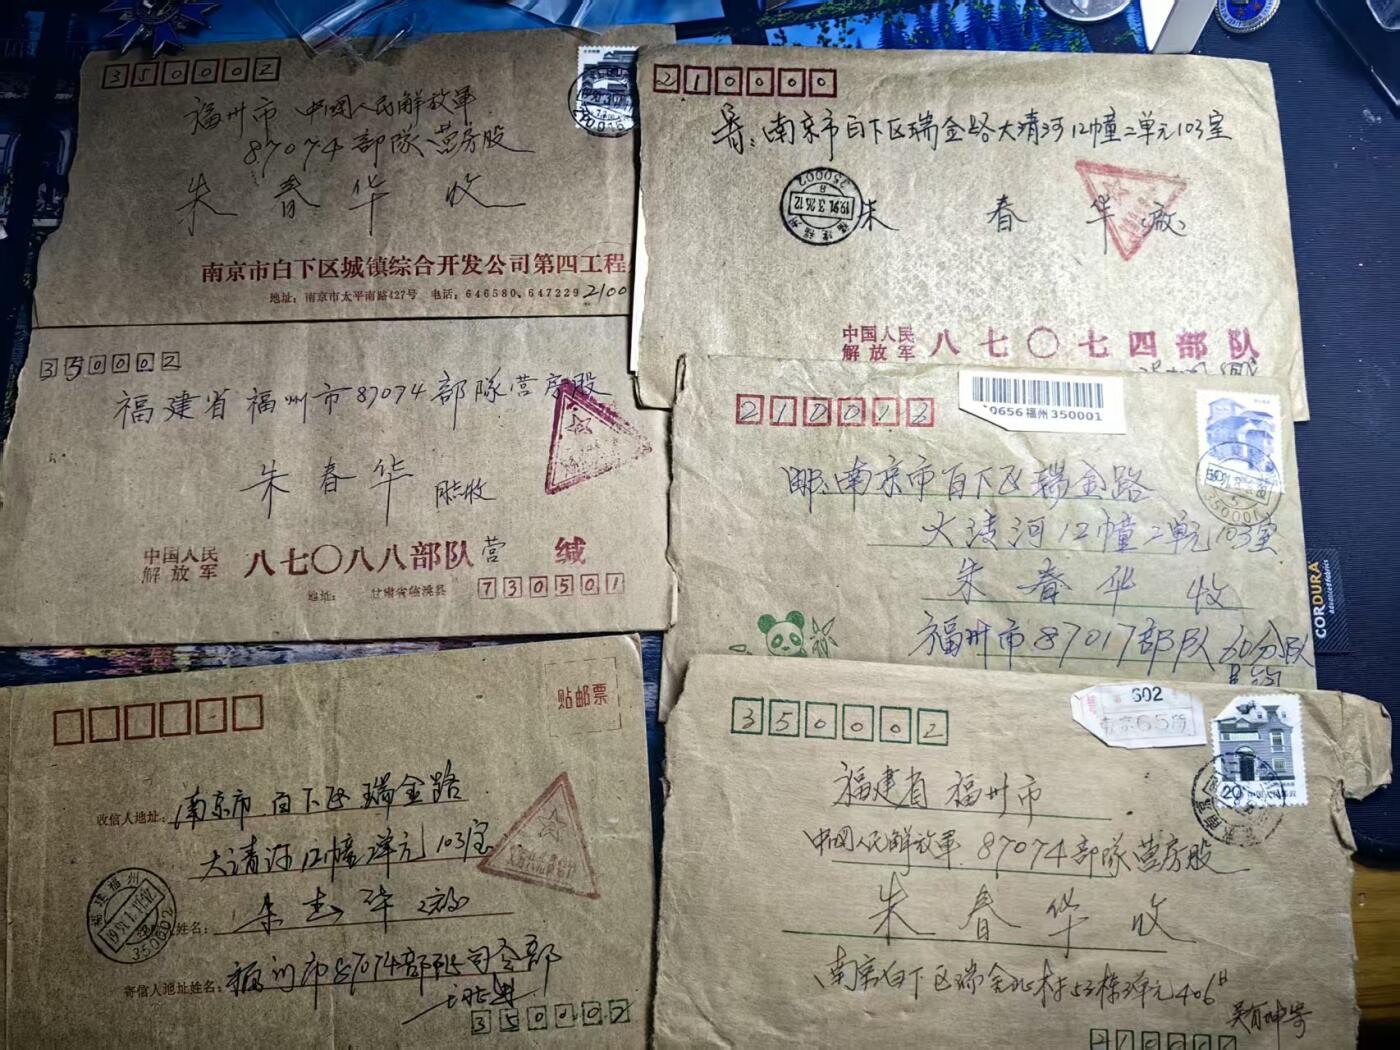 350002
福州市 中国人民解放军
87074部隊营房股
朱春华 收
南京市白下区城镇综合开发公司第四工程
地址：南京市太平南路427号 电话：646580、647229 2100
210000
南京市白下区瑞金路大清河12幢二单元103室
朱春华
350002
1991.3.26.12
中国人民解放军 八七〇七四部队
350002
福建省福州市87074部隊营房股
朱春华 同志收
中国人民解放军 八七〇八八部队 营 缄
地址： 甘肃省临洮县 730501
210013
0656 福州 350001
邮：南京市白下区瑞金路
大清河12幢二单元103室
朱春华 收
福州市87017部队60分队
贴邮票
收信人地址：南京市白下区瑞金路
大清河12幢2单元103室
姓名：朱春华
寄信人地址姓名：福州市87074部队司令部
350002
福建福州
350002
350002
602
南京65所
20 中国人民邮政
福建省福州市
中国人民解放军87074部隊营房股
朱春华 收
南京白下区瑞金北村53栋3单元406
CORDURA